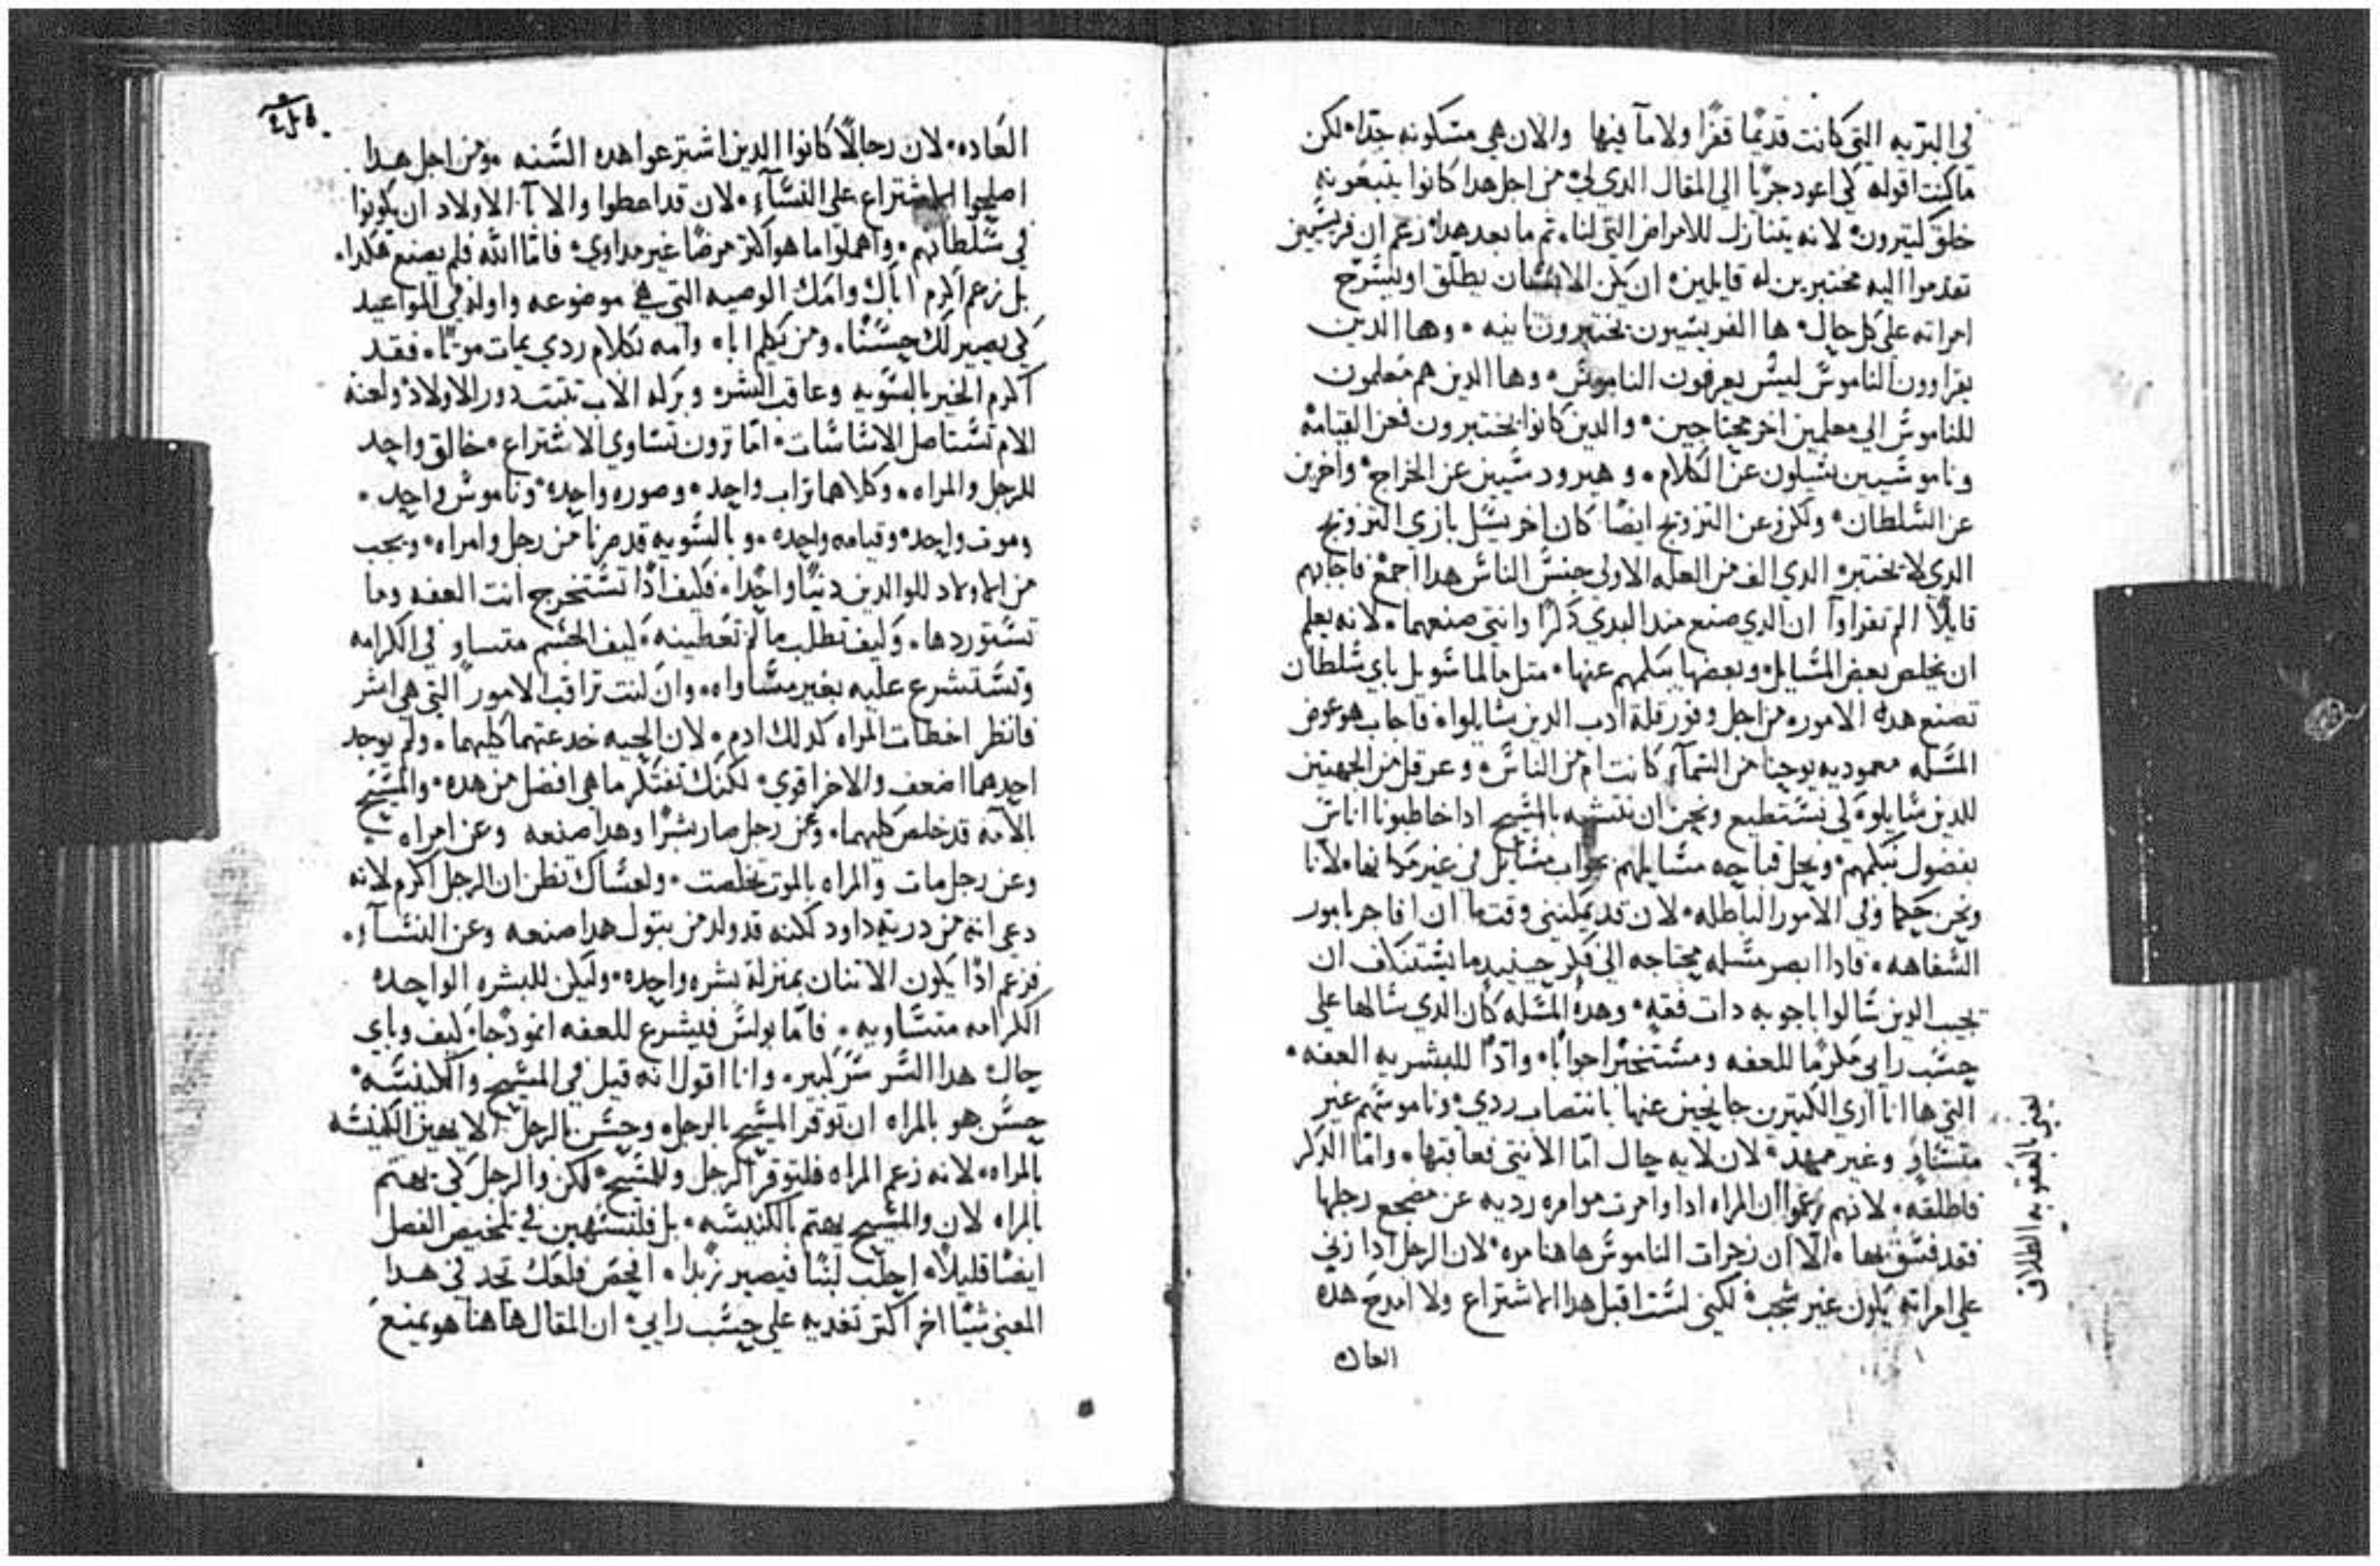 في البريه التي كانت قديمًا قفرًا ولا مآ فيها والان هي مسكونه جدًا، لكن
ما كنت اقوله كي اعود جريًا الي المقال الدي لي، من اجل هدا كانوا يتبعونه
خلق كتيرون، لانه يتنازل للامراض التي لنا، تم ما بعد هدا، زعم ان فريسيين
تقدموا اليه مختبرين له قايلين، ان يكن الانسان يطلق او يسرح
امراته علي كل حال، ها الفريسيون يختبرون تانيه، وها الدين
يقراوون الناموس ليس يعرفون الناموس، وها الدين هم معلمون
للناموس الي معلمين اخر محتاجين، والدين كانوا يختبرون نحن القيامه
وناموسيين يسيلون عن الكلام، وهيرودسيين عن الخراج، واخرين
عن السلطان، ولكن عن التزويج ايضًا كان اخر يسل بازي التزويج
الدي لا يختبر، الدي الف من العله الاولي جنس الناس هدا اجمع فاجابهم
قايلًا الم تقراوا ان الدي صنع مند البدي دكرًا وانتي صنعهما، لانه يعلم
ان يخلص بعض المسايل، وبعضها يبكمهم عنها، متل ما لما سويل باي سلطان
تصنع هده الامور، من اجل وفور قلة ادب الدين سايلوا، فاجاب هو عوض
المسله معموديه يوحنا من السمآء كانت ام من الناس، وعرقل من الجهتين
للدين سايلوه لكي نستطيع ونحن ان نتشبه بالمسيح ادا خاطبونا اناس
بفضول نبكمهم، ونحل قباحه مسايلهم بجواب مسايل في غير مكانها، لانا
ونحن حكما وفي الامور الباطله، لان قد يمكنني وقت ما ان افاخر بامور
السفاهه، فادا ابصر مسله محتاجه الي فكر حينيد ما يستنكف ان
يجيب الدين سالوا باجوبه دات فقه، وهده المسله كان الدي سالها علي
حسب رايي مكرمًا للعفه ومستخبرًا جوابًا، وادًا للبشريه العفه،
التي ها انا اري الكتيرين جانحين عنها بانتصاب ردي، وناموسهم غير
متساو وغير ممهد، لان لايه حال اما الانتي فعاقبها، واما الدكر
فاطلقه، لانهم زعموا ان المراه ادا وامرت موامره رديه عن مضجع رجلها
فقد فسق بها، الا ان زجرات الناموس هاهنا مره، لان الرجل ادا زني
علي امراته يكون غير شجب، لكني لست اقبل هدا الاشتراع ولا امدح هده
العاده
يعني بالعقوبه الطلاق
العاده، لان رجالًا كانوا الدين اشترعوا هده السنه، ومن اجل هدا
اصلحوا الاشتراع علي النسآء، لان قد اعطوا والابآ الاولاد ان يكونوا
في سلطانهم، واهملوا ما هو اكتر مرضًا غير مداوي، فاما الله فلم يصنع هكدا،
بل زعم اكرم اباك وامك الوصيه التي هي موضوعه واوله في المواعيد
كي يصير لك حسنًا، ومن يكلم اباه وامه بكلام ردي يمات موتًا، فقد
اكرم الخير بالسويه وعاقب الشر، وبركه الاب تتبت دور الاولاد، ولعنه
الام تستاصل الاساسات، اما ترون تساوي الاشتراع، خالق واحد
للرجل والمراه، وكلاهما تراب واحد، وصوره واحده، وناموس واحد،
وموت واحد، وقيامه واحده، وبالسويه قد صرنا من رجل وامراه، ويجب
من الاولاد للوالدين دينًا واحدًا، فكيف ادًا تستخرج انت العفه وما
تستوردها، وكيف تطلب ما لم تعطينه، كيف الجسم متساو في الكرامه
وتستشرع عليه بغير مساواه، وان كنت تراقب الامور التي هي اشر
فانظر اخطات المراه كدلك ادم، لان الحيه خدعتهما كليهما، ولم يوجد
احدهما اضعف والاخر اقوي، لكنك تفتكر ما هي افضل من هده، والمسيح
بالامه قد خلص كليهما، وعن رجل صار بشرًا وهدا صنعه وعن امراه
وعن رجل مات والمراه بالموت تخلصت، ولعساك تظن ان الرجل اكرم لانه
دعي انه من درية داود لكنه قد ولد من بتول هدا صنعه وعن النسآء،
فزعم ادًا يكون الاتنان بمنزلة بشره واحده، وليكن للبشره الواحده
الكرامه متساويه، فاما بولس فيشرع للعفه انمودجًا، كيف وباي
حال، هدا السر سر كبير، وانا اقول انه قيل في المسيح والكنيسه،
حسن هو بالمراه ان توقر المسيح بالرجل، وحسن بالرجل الا يهين الكنيسه
بالمراه، لانه زعم المراه فلتوقر الرجل وللمسيح، لكن والرجل كي يهتم
بالمراه لان والمسيح يهتم بالكنيسه، بل فلنستهين في تلخيص الفصل
ايضًا قليلًا، احلب لبنًا فيصير زبدًا، افحص فلعلك تجد في هدا
المعني شيًا اخر اكتر تغديه علي حسب رايي، ان المقال هاهنا هو يمنع